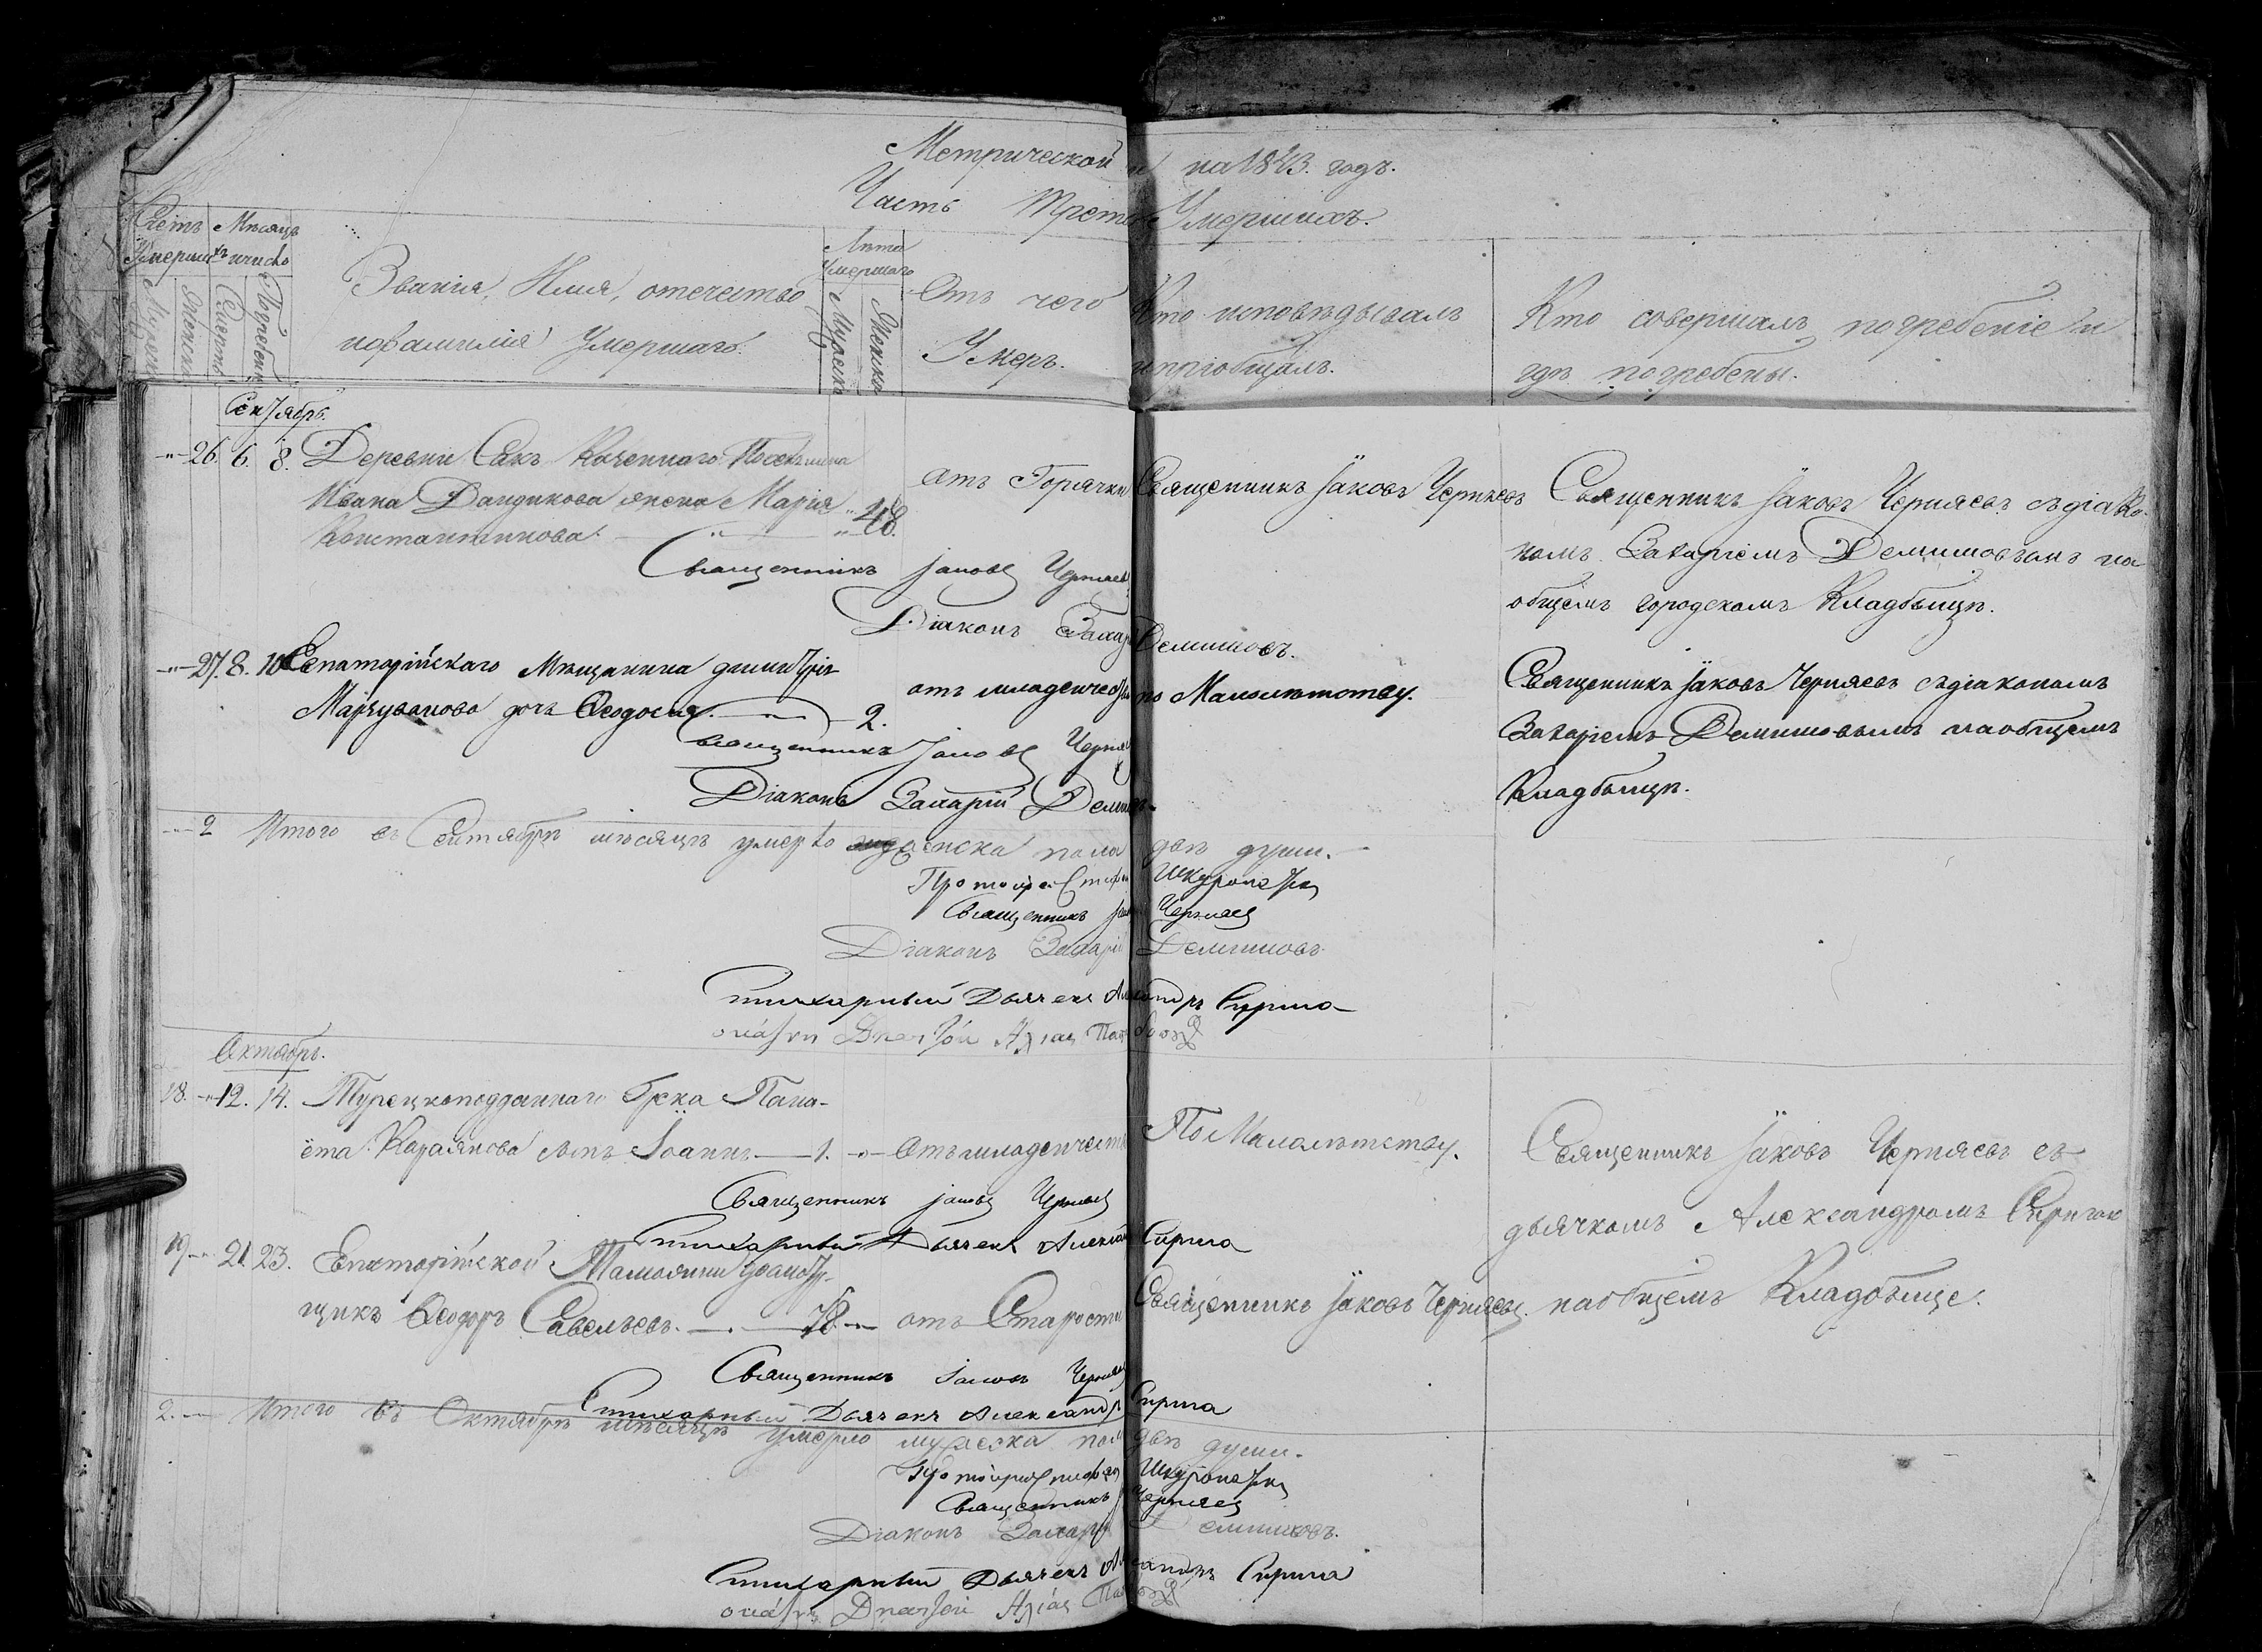 Метрической на 1843. годъ.
Часть Трет Умершихъ.
Счетъ Умерши
Мѣсяцъ и число
Мужеск
Женска
Смерть
Погребен
Званія, Имя, отечество
и фамилія Умершаго.
Лѣта Умершаго
Мужеска
Женска
Отъ чего
Умеръ.
Кто исповѣдывалъ
и пріобщалъ.
Кто совершалъ погребеніе и
гдѣ погребены.
Сентябрь.
26. 6. 8. Деревни Сакъ Поселянина
Ивана жена Марія 48.
Константинова.
отъ Горячки
Священникъ Іаковъ Черняевъ
Священникъ Іаковъ Черняевъ съ діако-
номъ Захаріемъ на
общемъ городскомъ Кладбищѣ.
Священникъ Іаковъ Черняевъ
Діаконъ Захар
27. 8. 10 Евпаторійскаго Мещанина Димитрія
дочь Ѳеодосія. 2.
отъ младенчес по Малолѣтству.
Священникъ Іаковъ Черняевъ съ діакономъ
Захаріемъ на общемъ
Кладбищѣ.
Священникъ Іаковъ Черня
Діаконъ Захарій
2 Итого въ Сентябрѣ мѣсяцѣ умерло женска пола двѣ души.
Протоіерей Стефан
Священникъ Черняевъ
Діаконъ Захарій
Стихарный Дьячекъ Александръ Сирига
Октябрь.
18. 12. 14. Турецкоподданнаго Грека Пана-
іота Караянова сынъ Іоаннъ 1. Отъ младенчест
По Малолѣтству.
Священникъ Іаковъ Черняевъ съ
дьячкомъ Александромъ Сиригою
на общемъ Кладбище.
Священникъ Іаковъ Черняевъ
Стихарный Дьячекъ Алексан Сирига
19 21. 23. Евпаторійской Таможни
щикъ Ѳеодоръ Савельевъ. 78. отъ Старости
Священникъ Іаковъ Черняевъ.
Священникъ Іаковъ Черняев
Стихарный Дьячекъ Александр Сирига
2. Итого въ Октябрѣ мѣсяцѣ умерло мужеска пола двѣ души.
Протоіерей Стефан
Священникъ Черняевъ
Діаконъ Захарі
Стихарный Дьячекъ Александръ Сирига